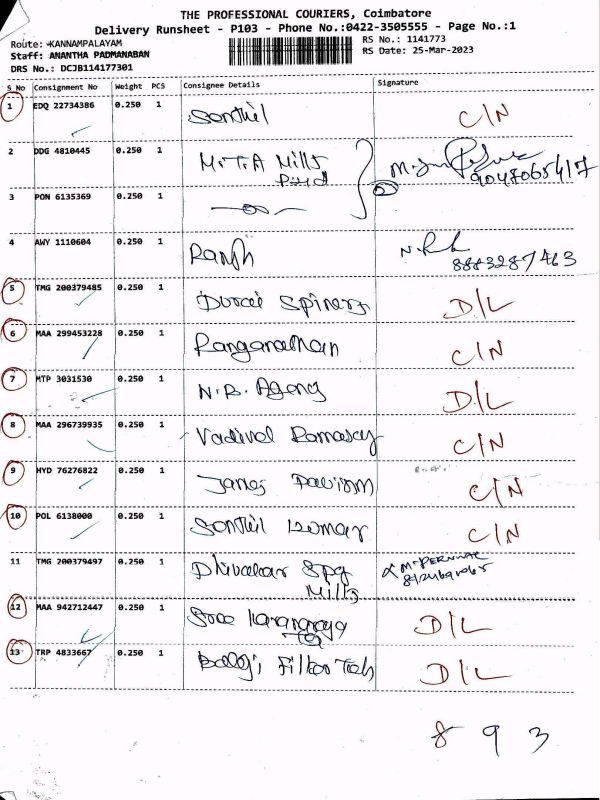 THE PROFESSIONAL COURIERS, Coimbatore
Delivery Runsheet - P103 - Phone No.:0422-3505555 - Page No.:1
Route: -KANNAMPALAYAM
Staff: ANANTHA PADMANABAN
DRS No.: DCJB114177301
RS No.: 1141773
RS Date: 25-Mar-2023
S No Consignment No Weight PCS Consignee Details Signature
1 EDQ 22734386 0.250 1 Senthil C/N
2 DDG 4810445 0.250 1 M.T.A Mills
3 PON 6135369 0.250 1
4 AWY 1110604 0.250 1 Ranjh 8883287463
5 TMG 200379485 0.250 1 Durai Spiners D/L
6 MAA 299453228 0.250 1 Ranganathan C/N
7 MTP 3031530 0.250 1 N.B. Agency D/L
8 MAA 296739935 0.250 1 Vadivel Ramasay C/N
9 HYD 76276822 0.250 1 James C/N
10 POL 6138000 0.250 1 Senthil Kumar C/N
11 TMG 200379497 0.250 1 Dhivakar Spg
Mills
12 MAA 942712447 0.250 1 Sree D/L
Tex
13 TRP 4833667 0.250 1 Balaji Filter Tech D/L
8 9 3